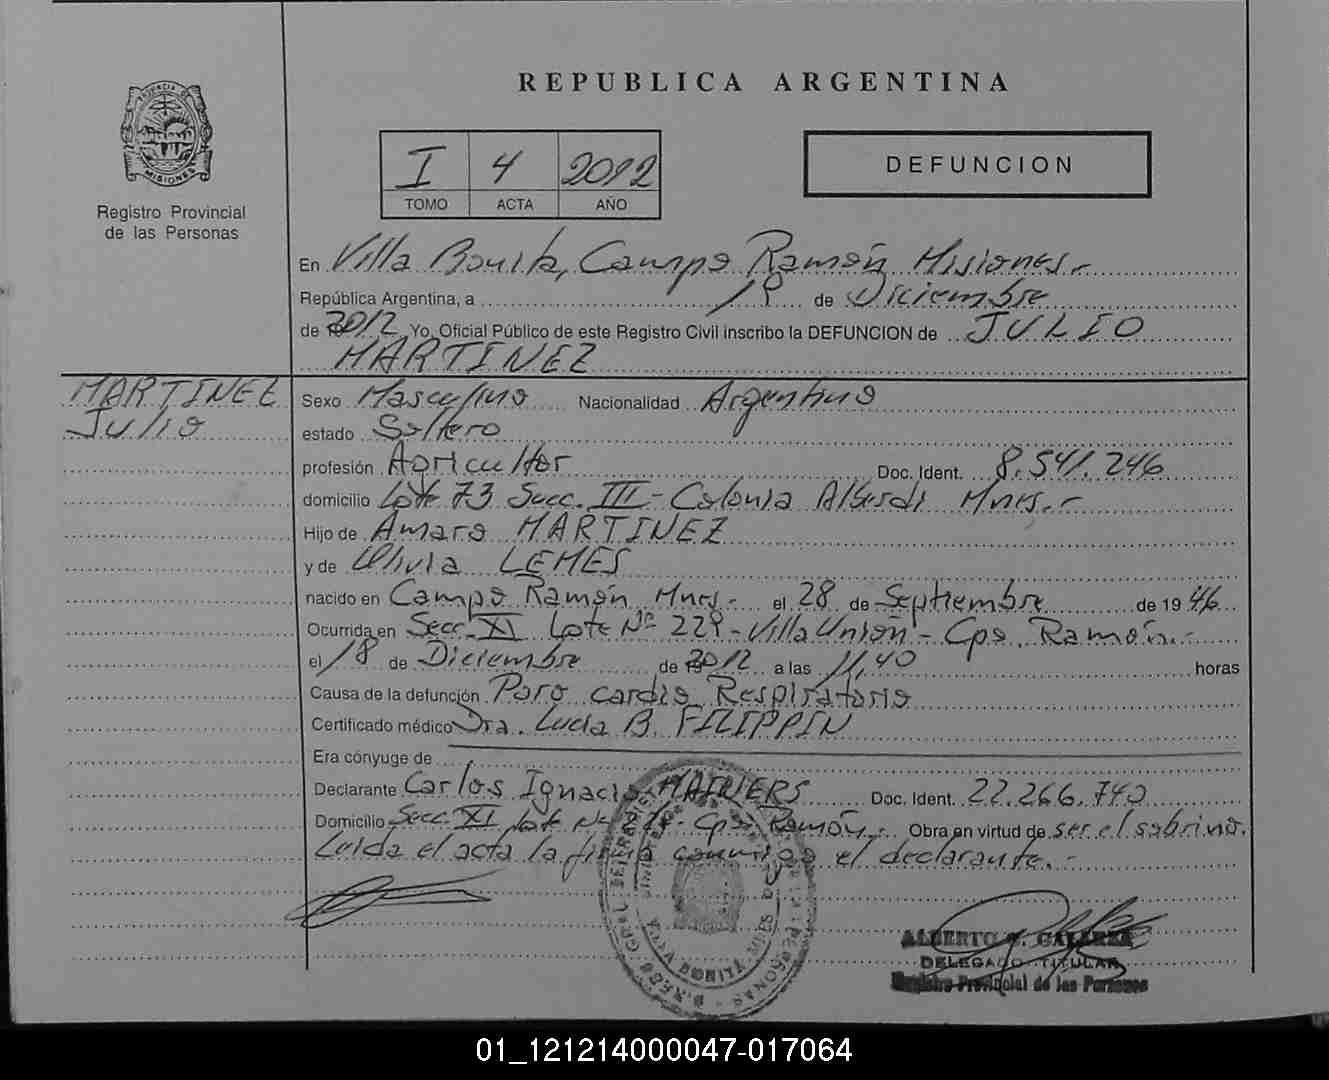 REPUBLICA ARGENTINA
PROVINCIA DE
MISIONES
Registro Provincial
de las Personas
I 4 2012
TOMO ACTA AÑO
DEFUNCION
En Villa Bonita, Campo Ramón Misiones.-
República Argentina, a 19 de Diciembre
de 2012 Yo, Oficial Público de este Registro Civil inscribo la DEFUNCION de JULIO
MARTINEZ
MARTINEZ
Julio
Sexo Masculino Nacionalidad Argentino
estado Soltero
profesión Agricultor Doc. Ident. 8.541.246
domicilio Lote 73 Secc. III - Colonia Alberdi Mnes.-
Hijo de Amaro MARTINEZ
y de LEMES
nacido en Campo Ramón Mnes.- el 28 de Septiembre de 1946
Ocurrida en Secc. XI Lote Nº 229 - Villa Unión - Cpo. Ramón.-
el 18 de Diciembre de 2012 a las 11,40 horas
Causa de la defunción Paro cardio Respiratorio
Certificado médico Dra. Lucia B. FILIPPIN
Era cónyuge de
Declarante Carlos Ignacio Doc. Ident. 22.266.740
Domicilio Secc. XI Lote Nº Cpo. Ramón.- Obra en virtud de ser el sobrino.
Leida el acta la firma conmigo el declarante.-
ALBERTO GALARZA
DELEGADO TITULAR
Registro Provincial de las Personas
01_121214000047-017064